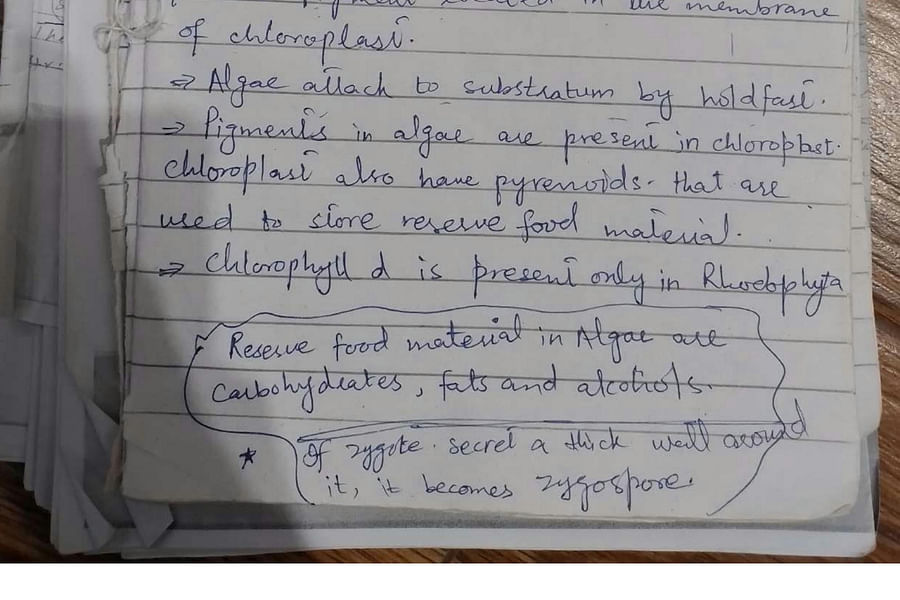 in the membrane
of chloroplast.
⇒ Algae attach to substratum by holdfast.
⇒ Pigments in algae are present in chloroplast.
chloroplast also have pyrenoids. that are
used to store reserve food material.
⇒ Chlorophyll d is present only in Rhodophyta
Reserve food material in Algae are
Carbohydrates, fats and alcohols.
* If zygote secret a thick wall around
it, it becomes zygospore.